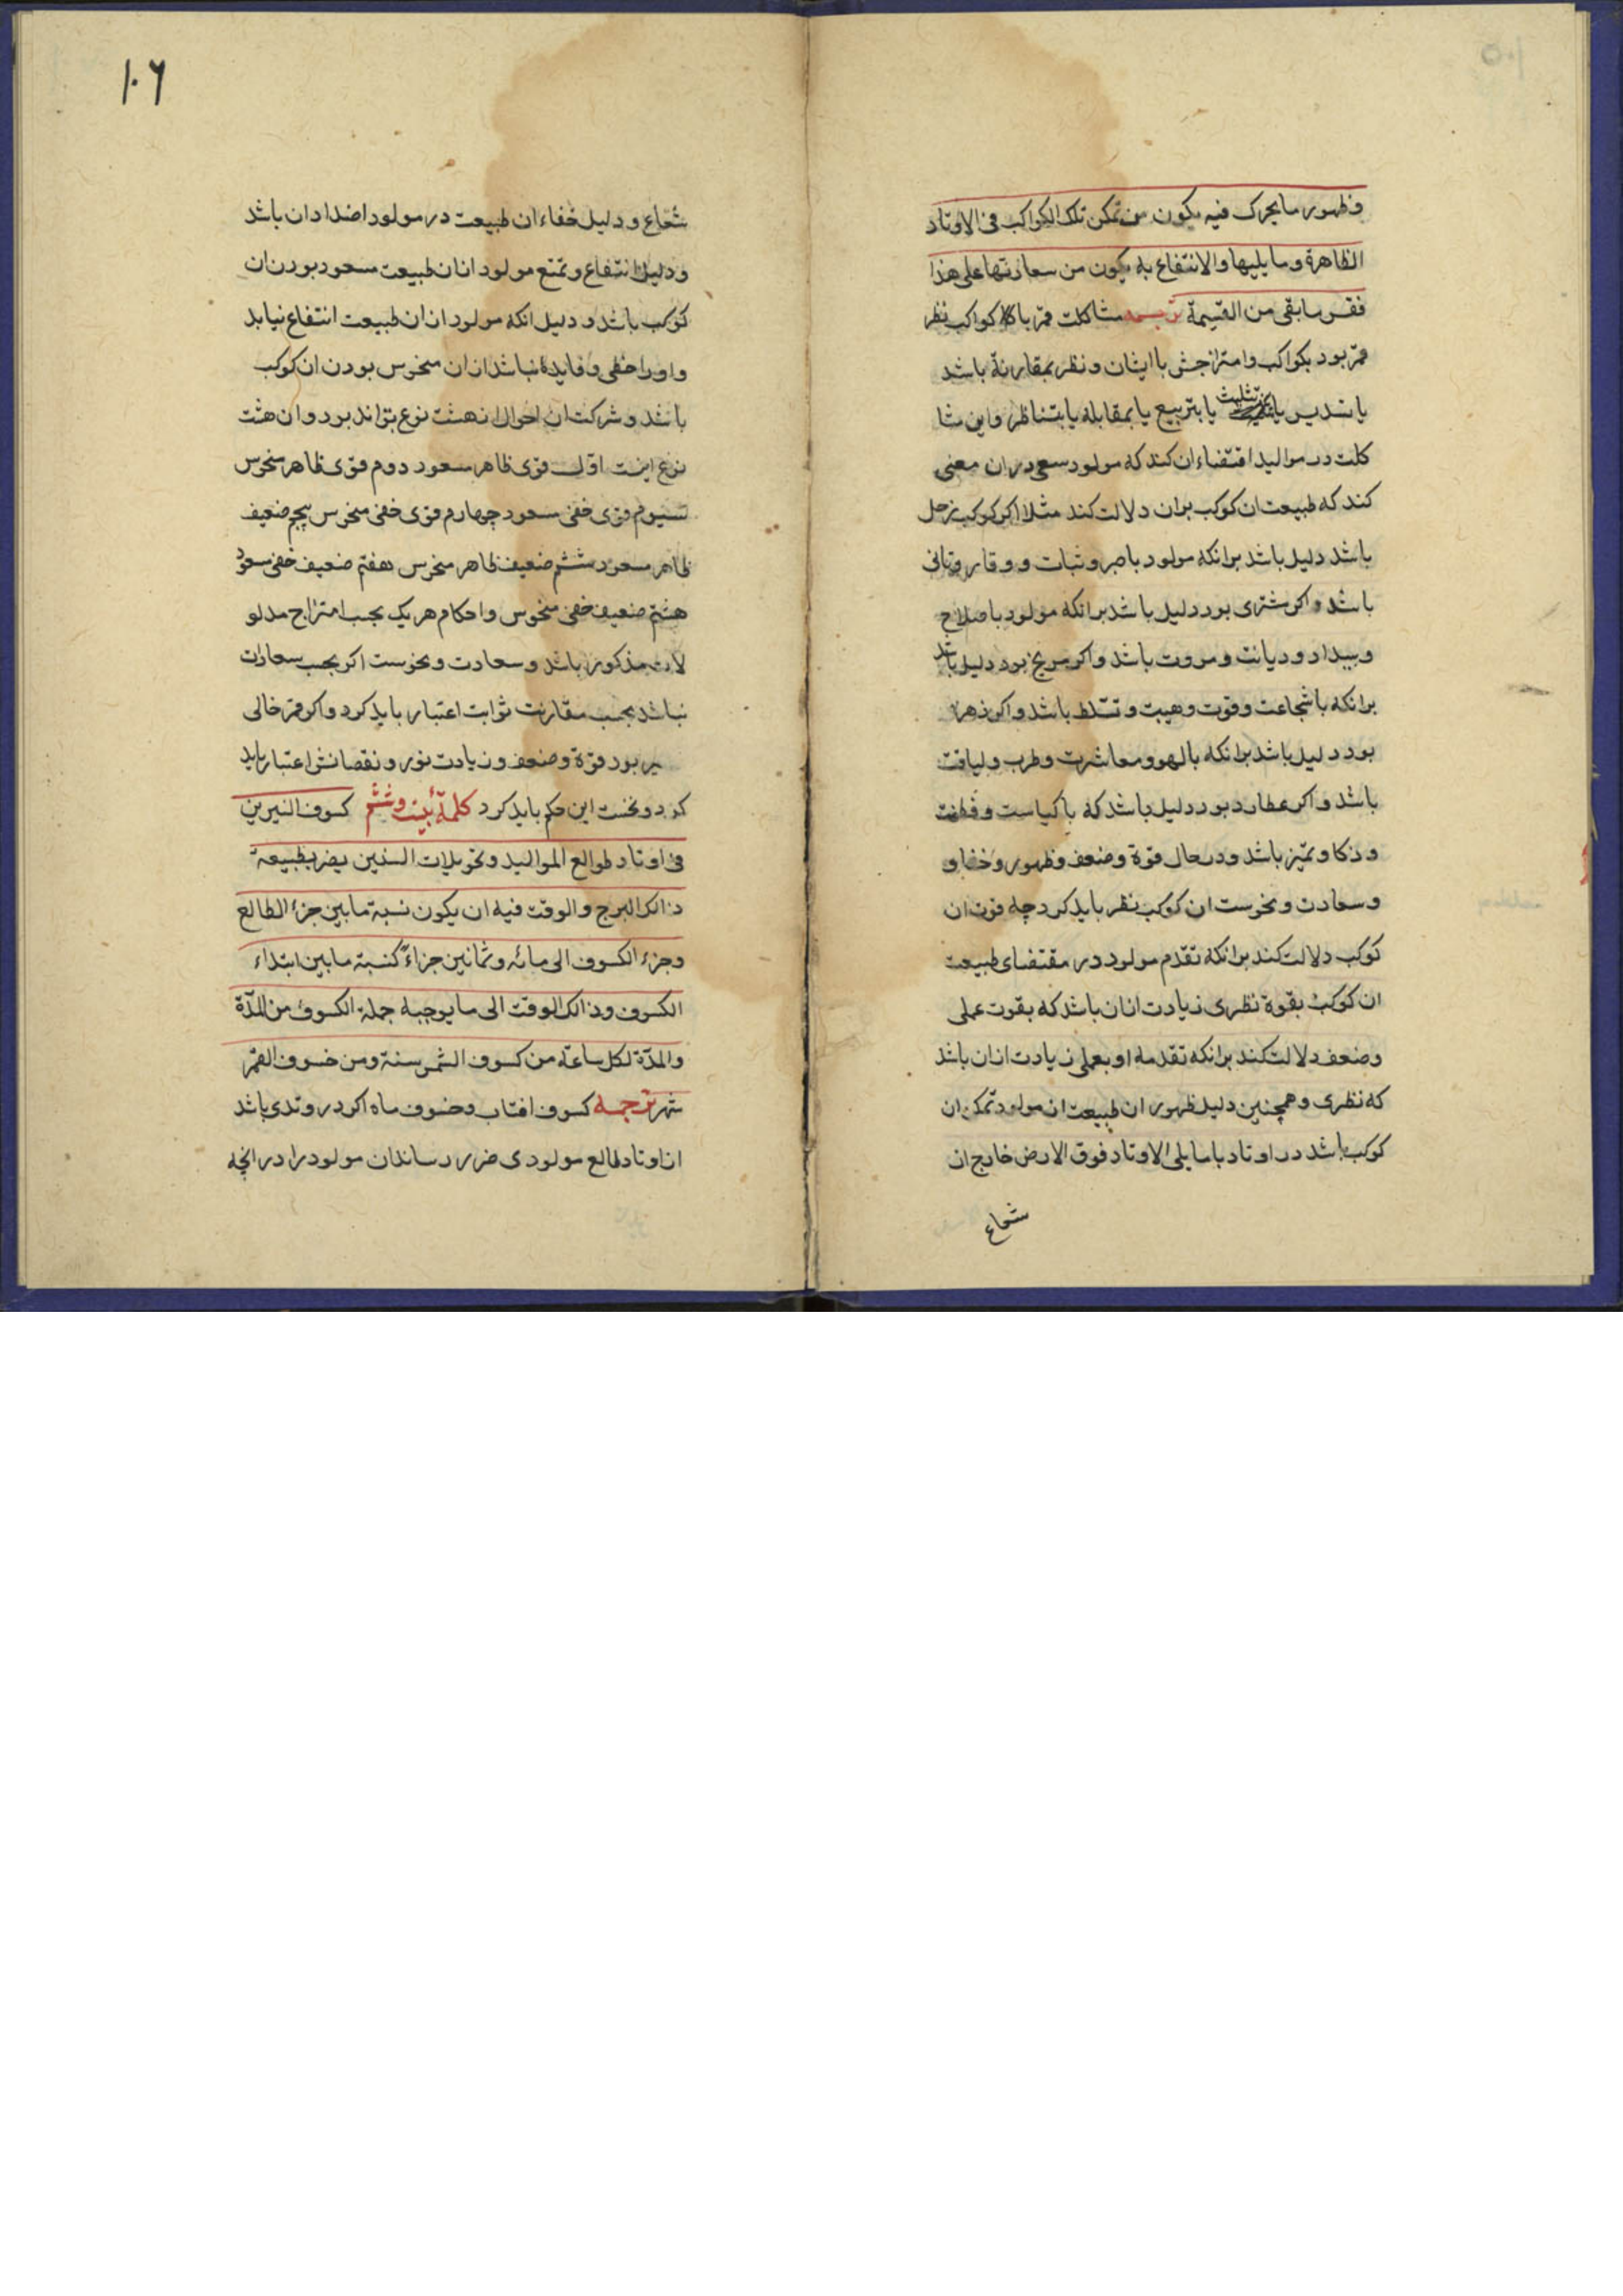 ۱۰۵
وظهور ما يحرك فيه يكون من تمكن تلك الكواكب فى الاوتاد
الظاهرة وما يليها والانتفاع به يكون من سعادتها على هذا
فقس ما بقى من القسيمة ترجمه مشاكلت قمر با كواكب نظر
قمر بود بكواكب وامتزاجش با ايشان ونظر بمقارنة باشد
يا تسديس يا تثليث يا بتربيع يا بمقابله يا بتناظر واين مشا
كلت در مواليد اقتضاء ان كند كه مولود سعى در ان معنى
كند كه طبيعت ان كوكب بران دلالت كند مثلا اكر كوكب زحل
باشد دليل باشد برانكه مولود با صبر وثبات و وقار وتانى
باشد واكر مشترى بود دليل باشد برانكه مولود با صلاح
وسداد وديانت ومروت باشد واكر مريخ بود دليل باشد
برانكه با شجاعت وقوت وهيبت وتسلط باشد واكر زهره
بود دليل باشد برانكه با لهو ومعاشرت وطرب ولياقت
باشد واكر عطارد بود دليل باشد كه با كياست وفطنت
وذكا وتميز باشد ودر حال قوة وضعف وظهور وخفا و
وسعادت ونحوست ان كوكب نظر بايد كرد چه قوت ان
كوكب دلالت كند برانكه تقدم مولود در مقتضاى طبيعت
ان كوكب بقوة نظرى زيادت از ان باشد كه بقوت عملى
وضعف دلالت كند برانكه تقدمه او بعملى زيادت از ان باشد
كه نظرى وهمچنين دليل ظهور ان طبيعت از مولود تمكن ان
كوكب باشد در اوتاد يا ما يلى الاوتاد فوق الارض خارج از
شعاع
۱۰۶
شعاع و دليل خفاء ان طبيعت در مولود اضداد ان باشد
ودليل انتفاع وتمتع مولود از ان طبيعت مسعود بودن ان
كوكب باشد و دليل انكه مولود از ان طبيعت انتفاع نيابد
واورا حظى وفايدۀ نباشد از ان منحوس بودن ان كوكب
باشد وشركت ان احوال از هشت نوع تواند بود وان هشت
نوع اينست اول قوى ظاهر مسعود دوم قوى ظاهر منحوس
سيوم قوى خفى مسعود چهارم قوى خفى منحوس پنجم ضعيف
ظاهر مسعود ششم ضعيف ظاهر منحوس هفتم ضعيف خفى مسعود
هشتم ضعيف خفى منحوس واحكام هريك بحسب امتزاج مدلو
لات مذكور باشد وسعادت ونحوست اكر بحسب سعادات
نباشد بحسب مقارنت ثوابت اعتبار بايد كرد واكر قمر خالى
سير بود قوة وضعف وزيادت نور و نقصانش اعتبار بايد
كرد ونخست اين حكم بايد كرد كلمۀ بيست وششم كسوف النيرين
فى اوتاد طوالع المواليد وتحويلات السنين يضر بطبيعة
ذالك البرج والوقت فيه ان يكون نسبة ما بين جزء الطالع
وجزء الكسوف الى مائه وثمانين جزاءً كنسبة ما بين ابتداء
الكسوف وذالك الوقت الى ما يوجبه جملة الكسوف من المدّة
والمدّة لكل ساعة من كسوف الشمس سنة ومن خسوف القمر
شهر ترجمه كسوف افتاب وخسوف ماه اكر در وتدى باشد
از اوتاد طالع مولودى ضرر رساندان مولود را در انچه